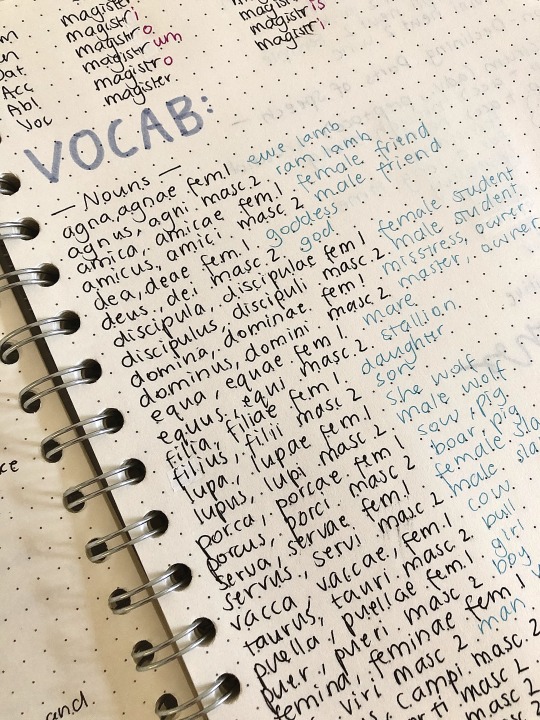 magister
magistri
magistro
magistrum
magistro
magister
is
magistri
Dat.
Acc
Abl
Voc
VOCAB:
— Nouns —
agna, agnae fem.1 ewe lamb
agnus, agni masc.2 ram lamb
amica, amicae fem.1 female friend
amicus, amici masc.2 male friend
dea, deae fem.1 goddess
deus, dei masc.2 god
discipula, discipulae fem 1 female student
discipulus, discipuli masc.2 male student
domina, dominae fem.1 misstress, owner
dominus, domini masc.2 master, owner
equa, equae fem 1 mare
equus, equi masc.2 stallion
filia, filiae fem 1 daughter
filius, filii masc 2 son
lupa, lupae fem.1 she wolf
lupus, lupi masc.2 male wolf
porca, porcae fem 1 sow, pig
porcus, porci masc 2 boar, pig
serva, servae fem.1 female
servus, servi masc 2 male
vacca, vaccae, fem.1 cow
taurus, tauri masc 2 bull
puella, puellae fem.1 girl
puer, pueri masc 2 boy
femina, feminae fem 1
viri masc 2 man
campi masc.2
masc 2
and